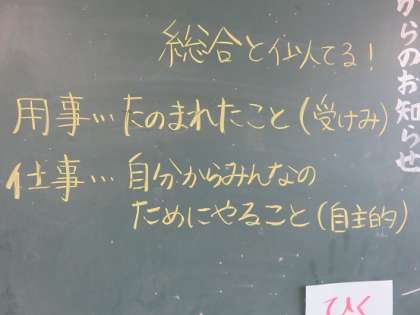 総合と似てる!
用事…たのまれたこと(受けみ)
仕事…自分からみんなの
ためにやること(自主的)
からのお知らせ
ひく